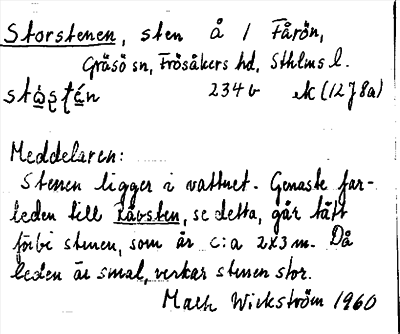 Storstenen, sten Å / Fårön,
Gräsö sn, Frösåkers hd, Sthlms l.
234 v ek (12J8a)
Meddelaren:
Stenen ligger i vattnet. Genaste far-
leden till Rävsten, se detta, går tätt
förbi stenen, som är c:a 2x3 m. Då
leden är smal, verkar stenen stor.
Wickström 1960